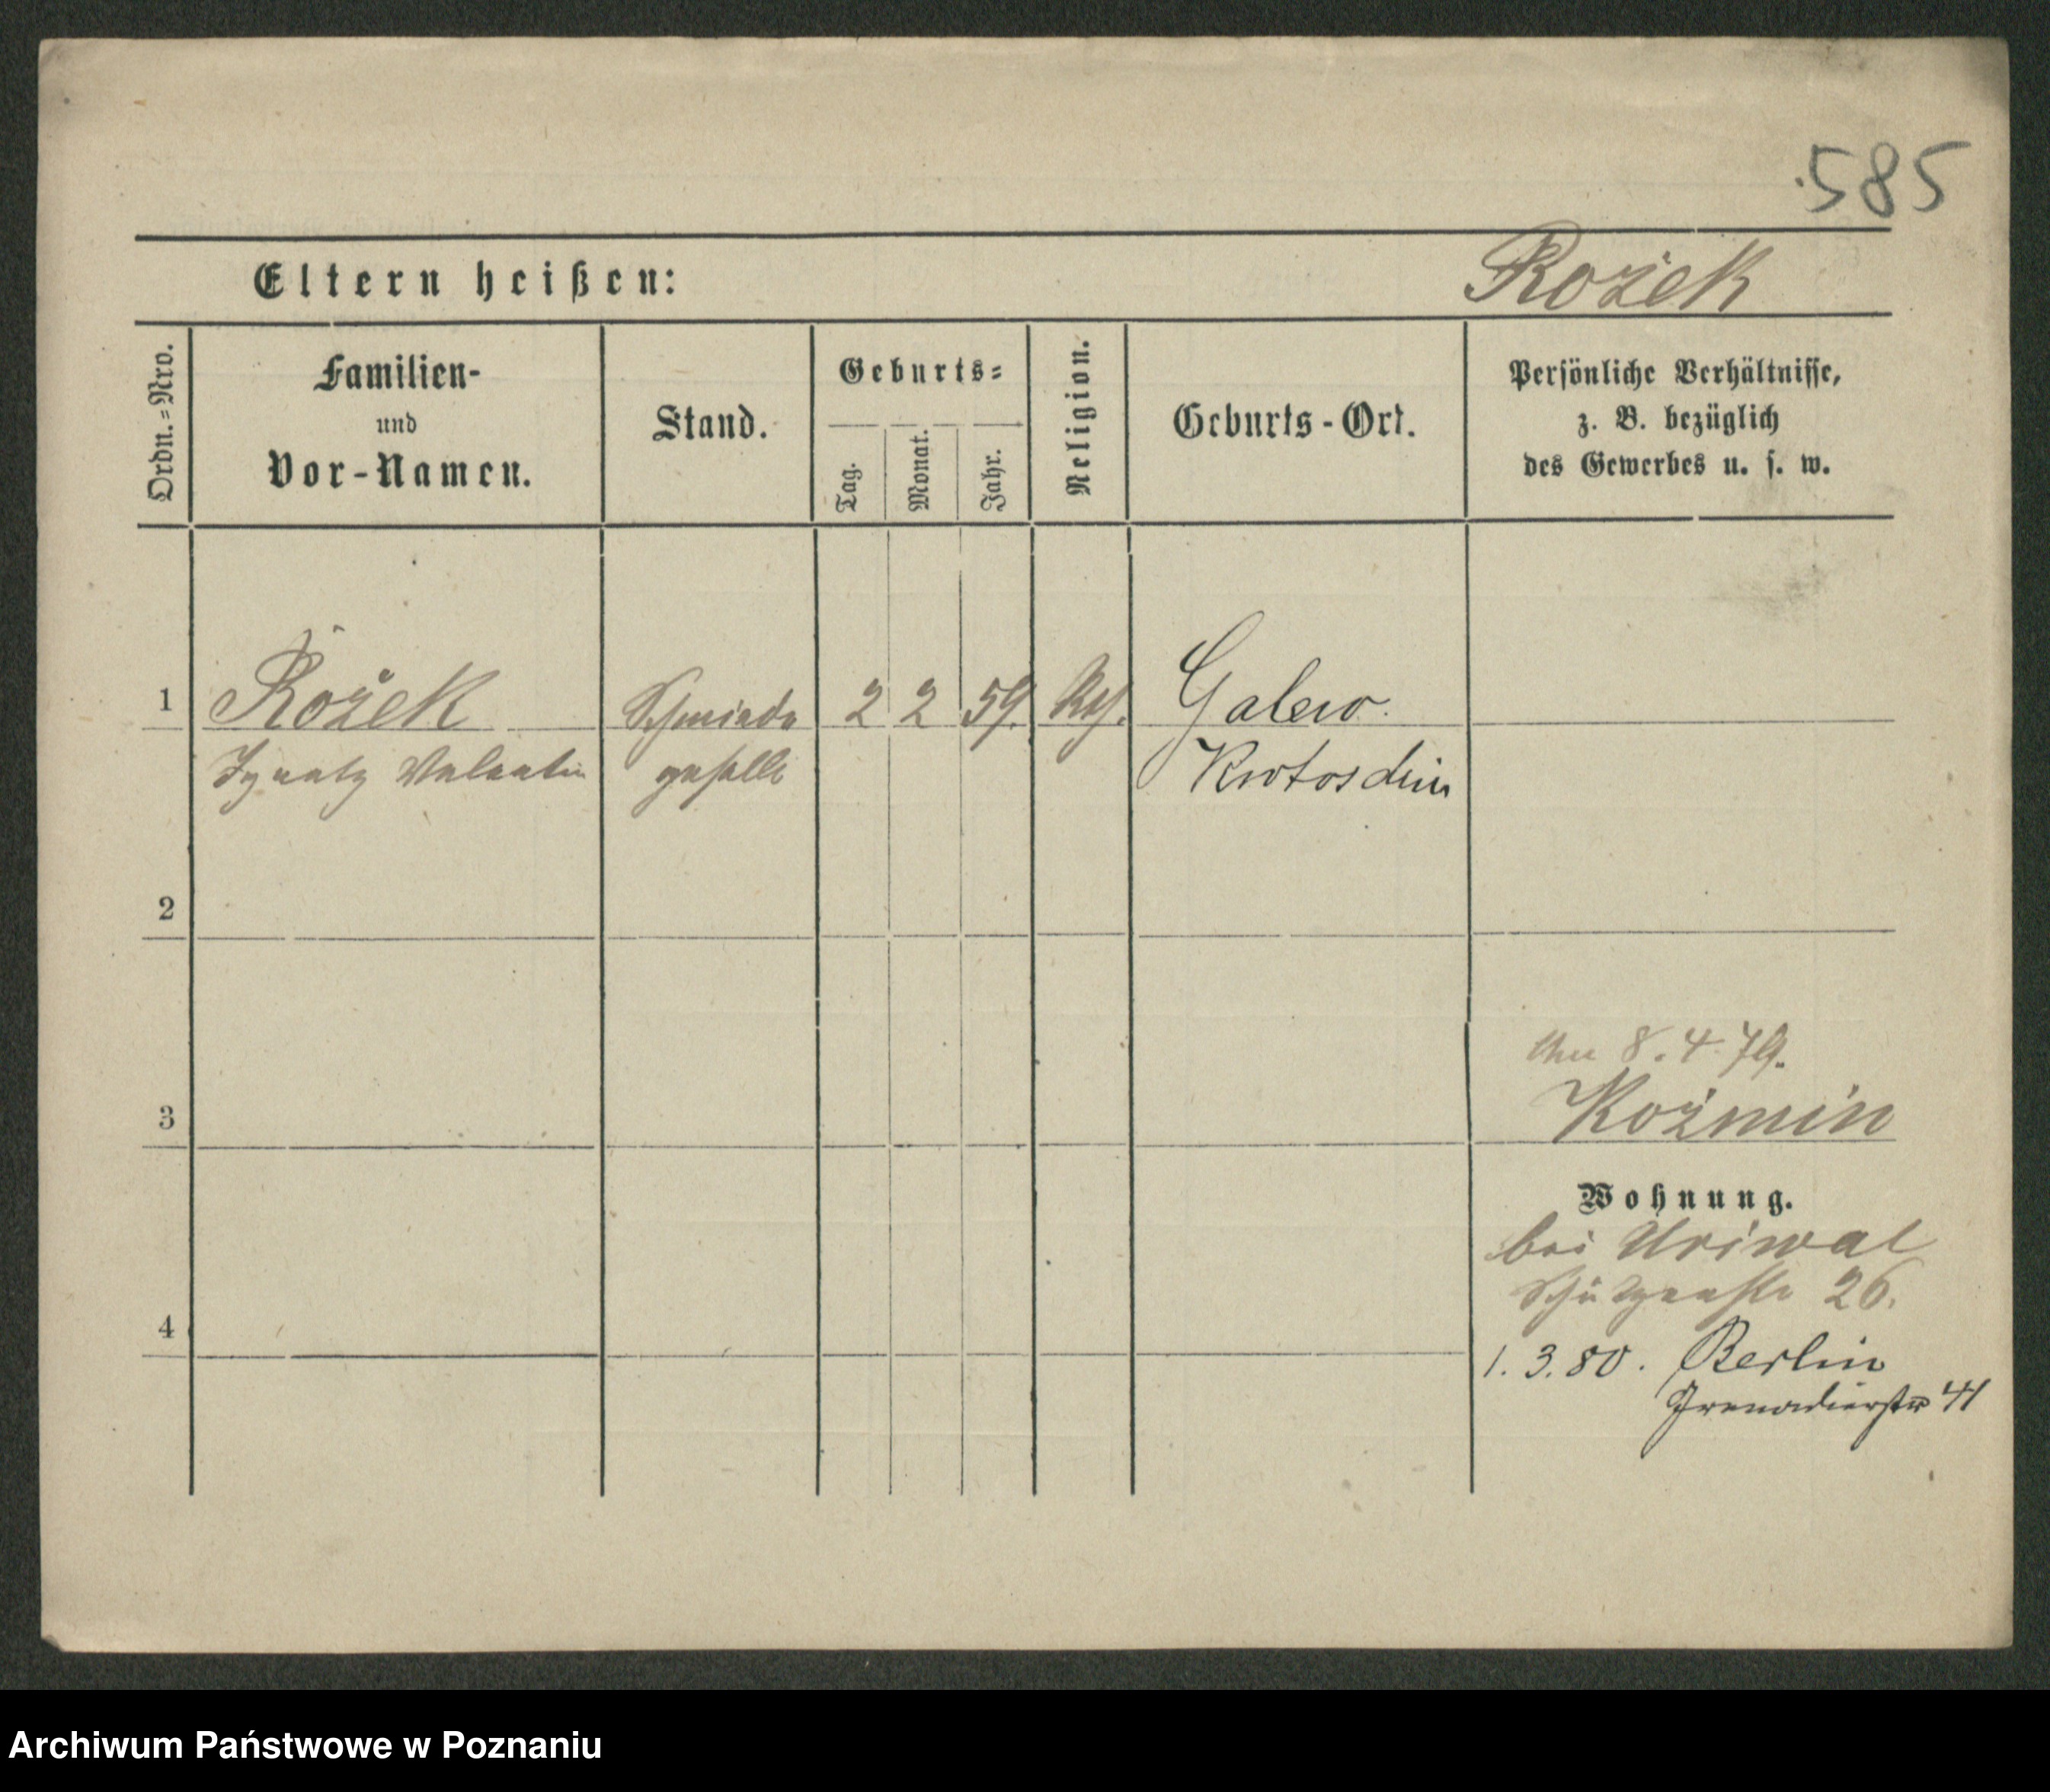 585
Eltern heißen:
Rożek
Ordn.=Nro.
Familien-
und
Vor-Namen.
Stand.
Geburts=
Tag.
Monat.
Jahr.
Religion.
Geburts-Ort.
Persönliche Verhältnisse,
z. B. bezüglich
des Gewerbes u. s. w.
1
Rożek
Ignatz Valentin
Schmiede
geselle
2
2
59.
Kth.
Galew
Krotoschin
2
3
8. 4. 79.
Kożmin
Wohnung.
bei
Schützenstr 26.
4
1. 3. 80. Berlin
Grenadierstr 41
Archiwum Państwowe w Poznaniu